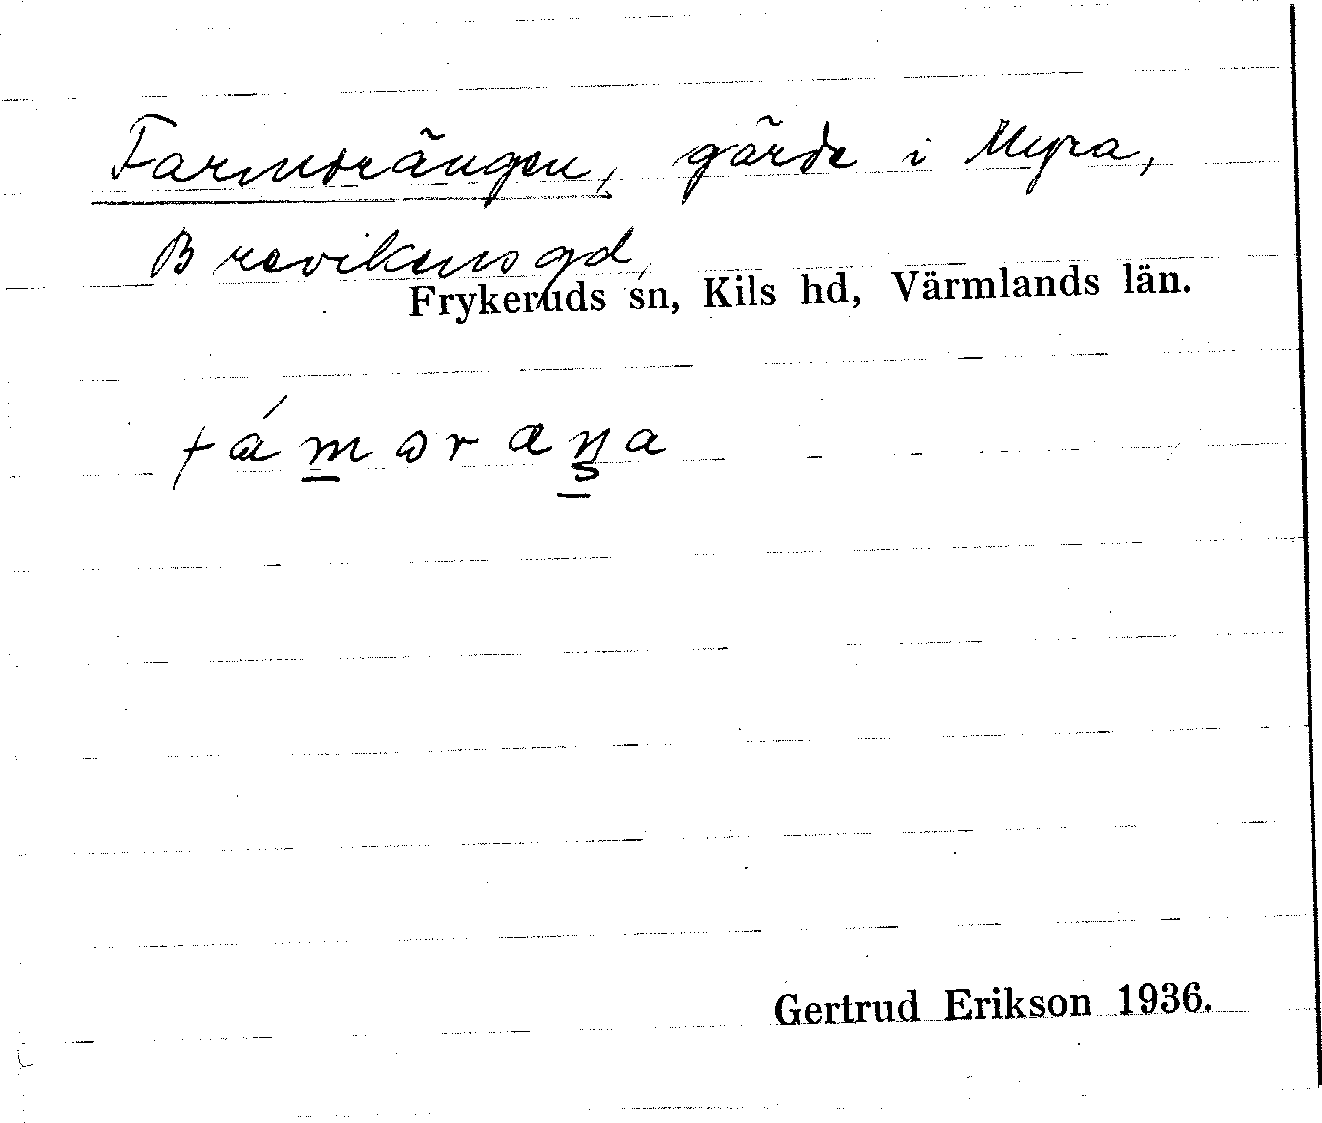 Farmorängen, gärde i Myra,
Brevikens gd,
Frykeruds sn, Kils hd, Värmlands län.
Gertrud Erikson 1936.